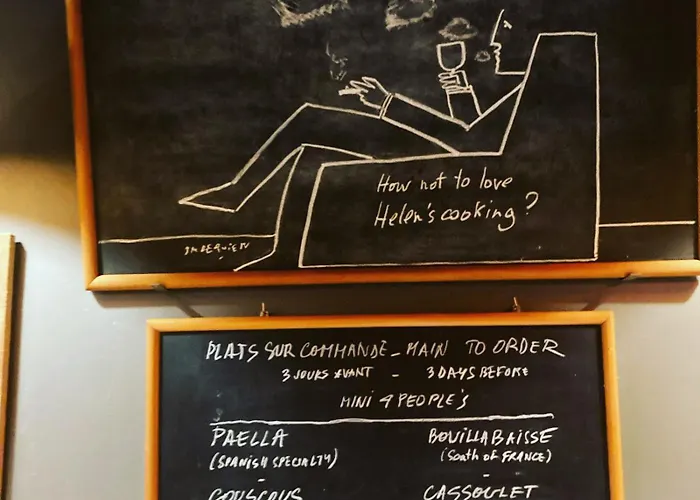 How not to love
Helen's cooking?
PLATS SUR COMMANDÉ - MAIN TO ORDER
3 JOURS AVANT - 3 DAYS BEFORE
MINI 4 PEOPLE'S
PAELLA BOUILLABAISSE
(SPANISH SPECIALTY) (SOUTH OF FRANCE)
- -
COUSCOUS CASSOULET